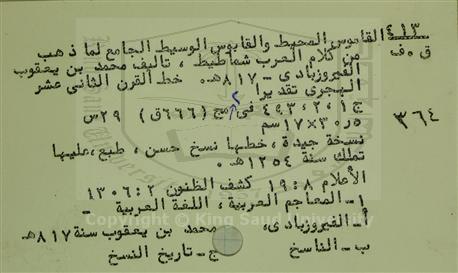 ٤١٣ القاموس المحيط والقابوس الوسيط الجامع لما ذهب
ق ٠ ف من كلام العرب شماطيط ، تاليف محمد بن يعقوب
الفيروزبادى - ٨١٧هـ٠ خط القرن الثانى عشر
الهجرى تقديرا
ج١ ،٢ ،٣ ،٤ فى ٢ مج (٦٦٦ق) ٢٩س
٣٦٤ ٥ر٣٠×١٧سم
نسخة جيدة ، خطها نسخ حسن ، طبع ، عليها
تملك سنة ١٢٥٤هـ ٠
الأعلام ٨ : ١٩ كشف الظنون ٢ : ١٣٠٦
١- المعاجم العربية ، اللغة العربية
أ- الفيروزبادى ، محمد بن يعقوب سنة ٨١٧هـ
ب- الناسخ ج- تاريخ النسخ
Copyright © King Saud University